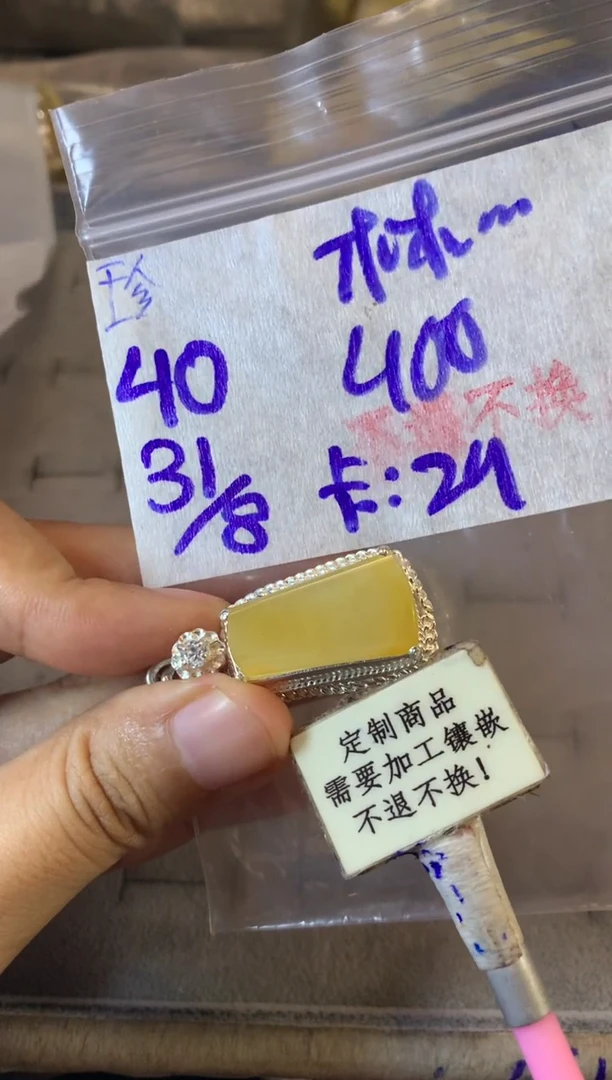 珍
40
400
不换
31/8
卡:24
定制商品
需要加工镶嵌
不退不换!